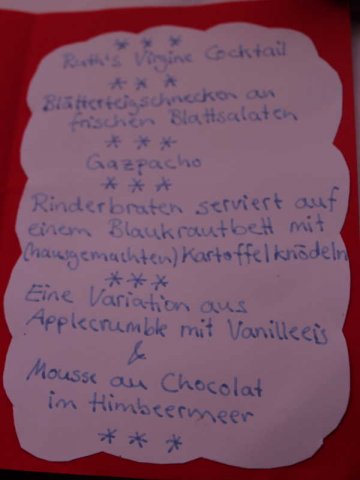 * * *
Ruth's Virgine Cocktail
* * *
Blätterteigschnecken an
frischen Blattsalaten
* * *
Gazpacho
* * *
Rinderbraten serviert auf
einem Blaukrautbett mit
(hausgemachten) Kartoffelknödeln
* * *
Eine Variation aus
Applecrumble mit Vanilleeis
&
Mousse au Chocolat
im Himbeermeer
* * *